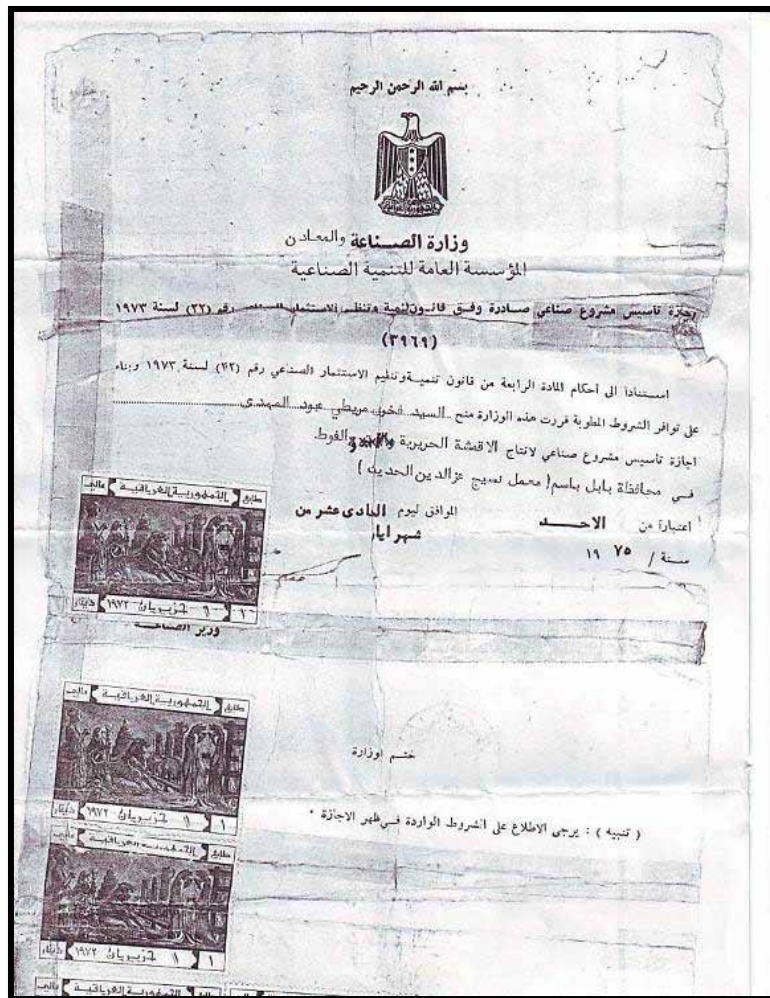 بسم الله الرحمن الرحيم
وزارة الصناعة والمعادن
المؤسسة العامة للتنمية الصناعية
اجازة تاسيس مشروع صناعي صادرة وفق قانون تنمية وتنظيم الاستثمار الصناعي رقم (٢٢) لسنة ١٩٧٣
(٣٩٦٩)
استنادا الى احكام المادة الرابعة من قانون تنمية وتنظيم الاستثمار الصناعي رقم (٢٢) لسنة ١٩٧٣ وبناء
على توافر الشروط المطلوبة قررت هذه الوزارة منح السيد عبود المهدى
اجازة تاسيس مشروع صناعي لانتاج الاقمشة الحريرية الفوط
في محافظة بابل باسم ( معمل نسيج عزالدين الحديث )
اعتبارة من الاحد الموافق ليوم الحادى عشر من
شهر ايار
سنة / ١٩ ٧٥
طابع الجمهورية العراقية مالي
١ ١ حزيران ١٩٧٢ دينار
وزير الصناعة
طابع الجمهورية العراقية مالي
١ ١ حزيران ١٩٧٢ دينار
ختم الوزارة
( تنبيه ) : يرجى الاطلاع على الشروط الواردة في ظهر الاجازة .
طابع الجمهورية العراقية مالي
١ ١ حزيران ١٩٧٢ دينار
طابع الجمهورية العراقية مالي